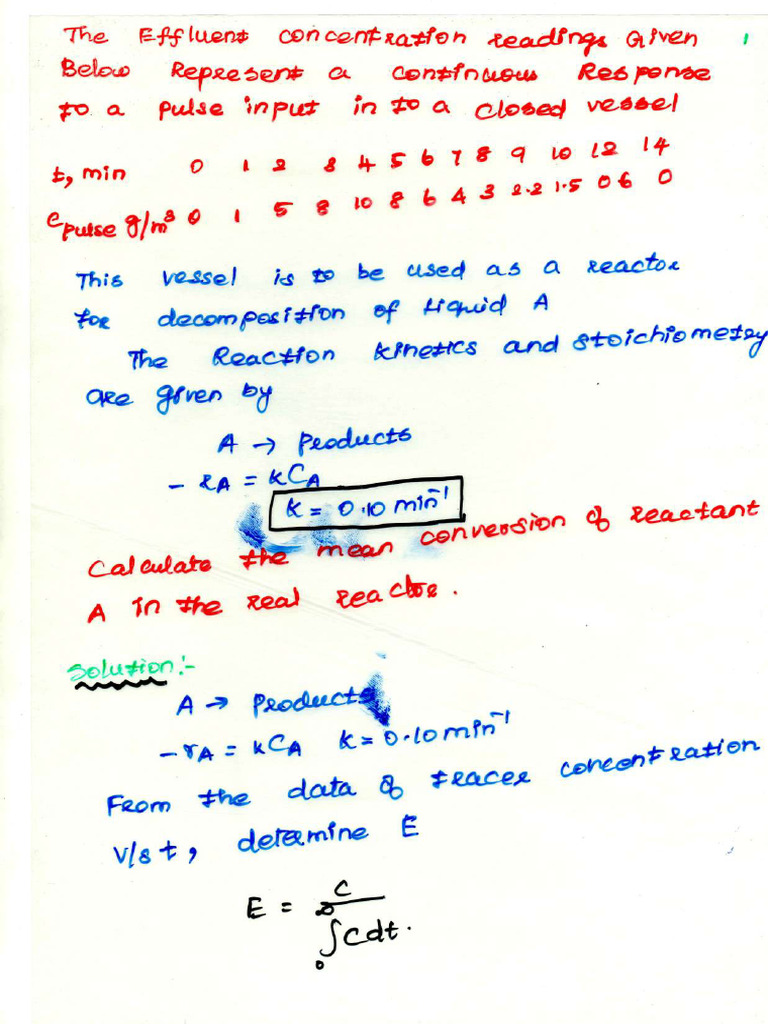 The Effluent concentration readings Given 1
Below Represent a continuous Response
to a pulse input in to a closed vessel
t, min 0 1 2 3 4 5 6 7 8 9 10 12 14
C pulse g/m³ 0 1 5 8 10 8 6 4 3 2.2 1.5 0.6 0
This vessel is to be used as a reactor
for decomposition of liquid A
The Reaction kinetics and stoichiometry
are given by
A → Products
- rA = kCA
k = 0.10 min⁻¹
Calculate the mean conversion of reactant
A in the real reactor.
Solution:-
A → Products
- rA = kCA k = 0.10 min⁻¹
From the data of tracer concentration
v/s t, determine E
E = C / ∞∫0 C dt.